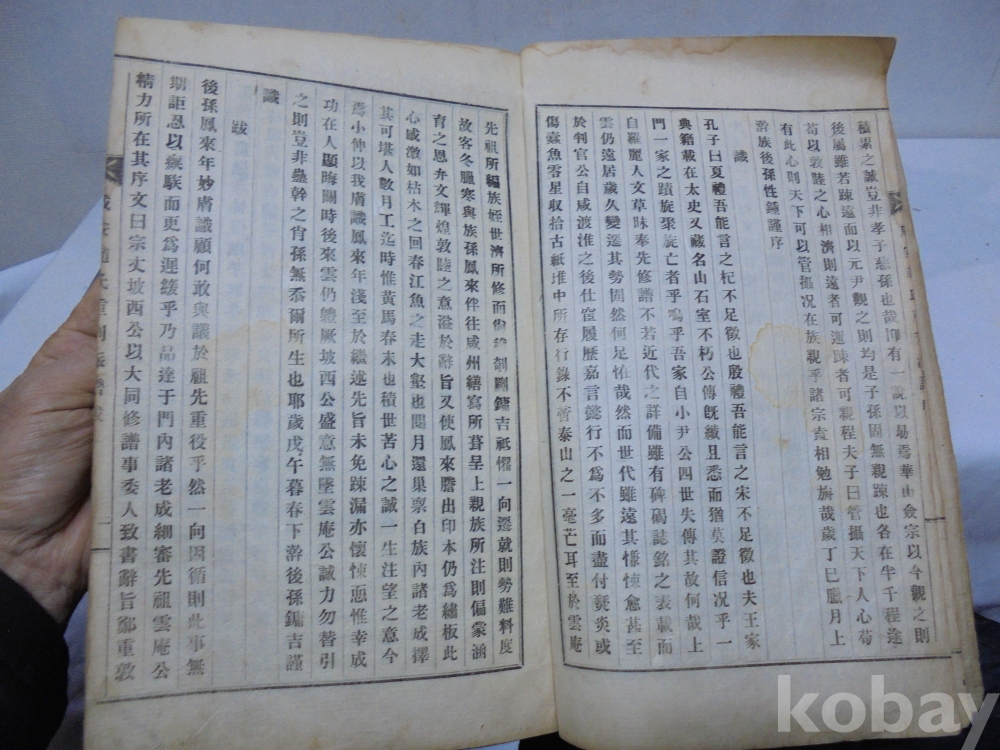 積累之誠豈非孝子慈孫也哉抑有一說以勗焉華山僉宗以今觀之則
後屬雖若踈遠而以元尹觀之則均是子孫固無親踈也各在半千程途
苟以敦睦之心相濟則遠者可邇踈者可親程夫子曰管攝天下人心苟
有此心則天下可以管攝况在族親乎諸宗盍相勉旃哉歲丁巳臘月上
澣族後孫性鍾謹序
識
孔子曰夏禮吾能言之杞不足徵也殷禮吾能言之宋不足徵也夫王家
典籍載在太史又藏名山石室不朽公傳旣纎且悉而猶莫證信况乎一
門一家之蹟旋聚旋亡者乎嗚乎吾家自小尹公四世失傳其故何哉上
自羅麗人文草昧奉先修譜不若近代之詳備雖有碑碣誌銘之表載而
雲仍遠居歲久變遷其勢固然何足怪哉然而世代雖遠其悽愴愈甚至
於判官公自咸渡淮之後仕宦履歷嘉言懿行不爲不多而盡付㷊炎或
傷蠹魚零星收拾古紙堆中所存行錄不啻泰山之一毫芒耳至於雲庵
先祖所編族姪世濟所修而剞劂鏞吉祇懼一向遷就則勢難料度
故客冬臘寒與族孫鳳來伴往咸州繕寫所葺呈上親族所注則偏蒙涵
育之恩弁文輝煌敦睦之意溢於辭旨又使鳳來謄出印本仍爲繡板此
心感激如枯木之回春江魚之走大壑也閱月還巢稟白族內諸老成擇
其可堪人數月工迄時惟黃馬春末也積世苦心之誠一生注望之意今
焉小伸以我膚識鳳來年淺至於繼述先旨未免踈漏亦懷悚恧惟幸成
功在人顯晦關時後來雲仍覬厥坡西公盛意無墜雲庵公誠力勿替引
之則豈非蠱幹之肖孫無忝爾所生也耶歲戊午暮春下澣後孫鏞吉謹
識
跋
後孫鳳來年妙膚識顧何敢與議於祖先重役乎然一向因循則此事無
期詎忍以䫋駭而更爲遲緩乎乃品達于門內諸老成細審先祖雲庵公
精力所在其序文曰宗丈坡西公以大同修譜事委人致書辭旨鄭重敦
咸安趙氏重刊派譜
二
kobay